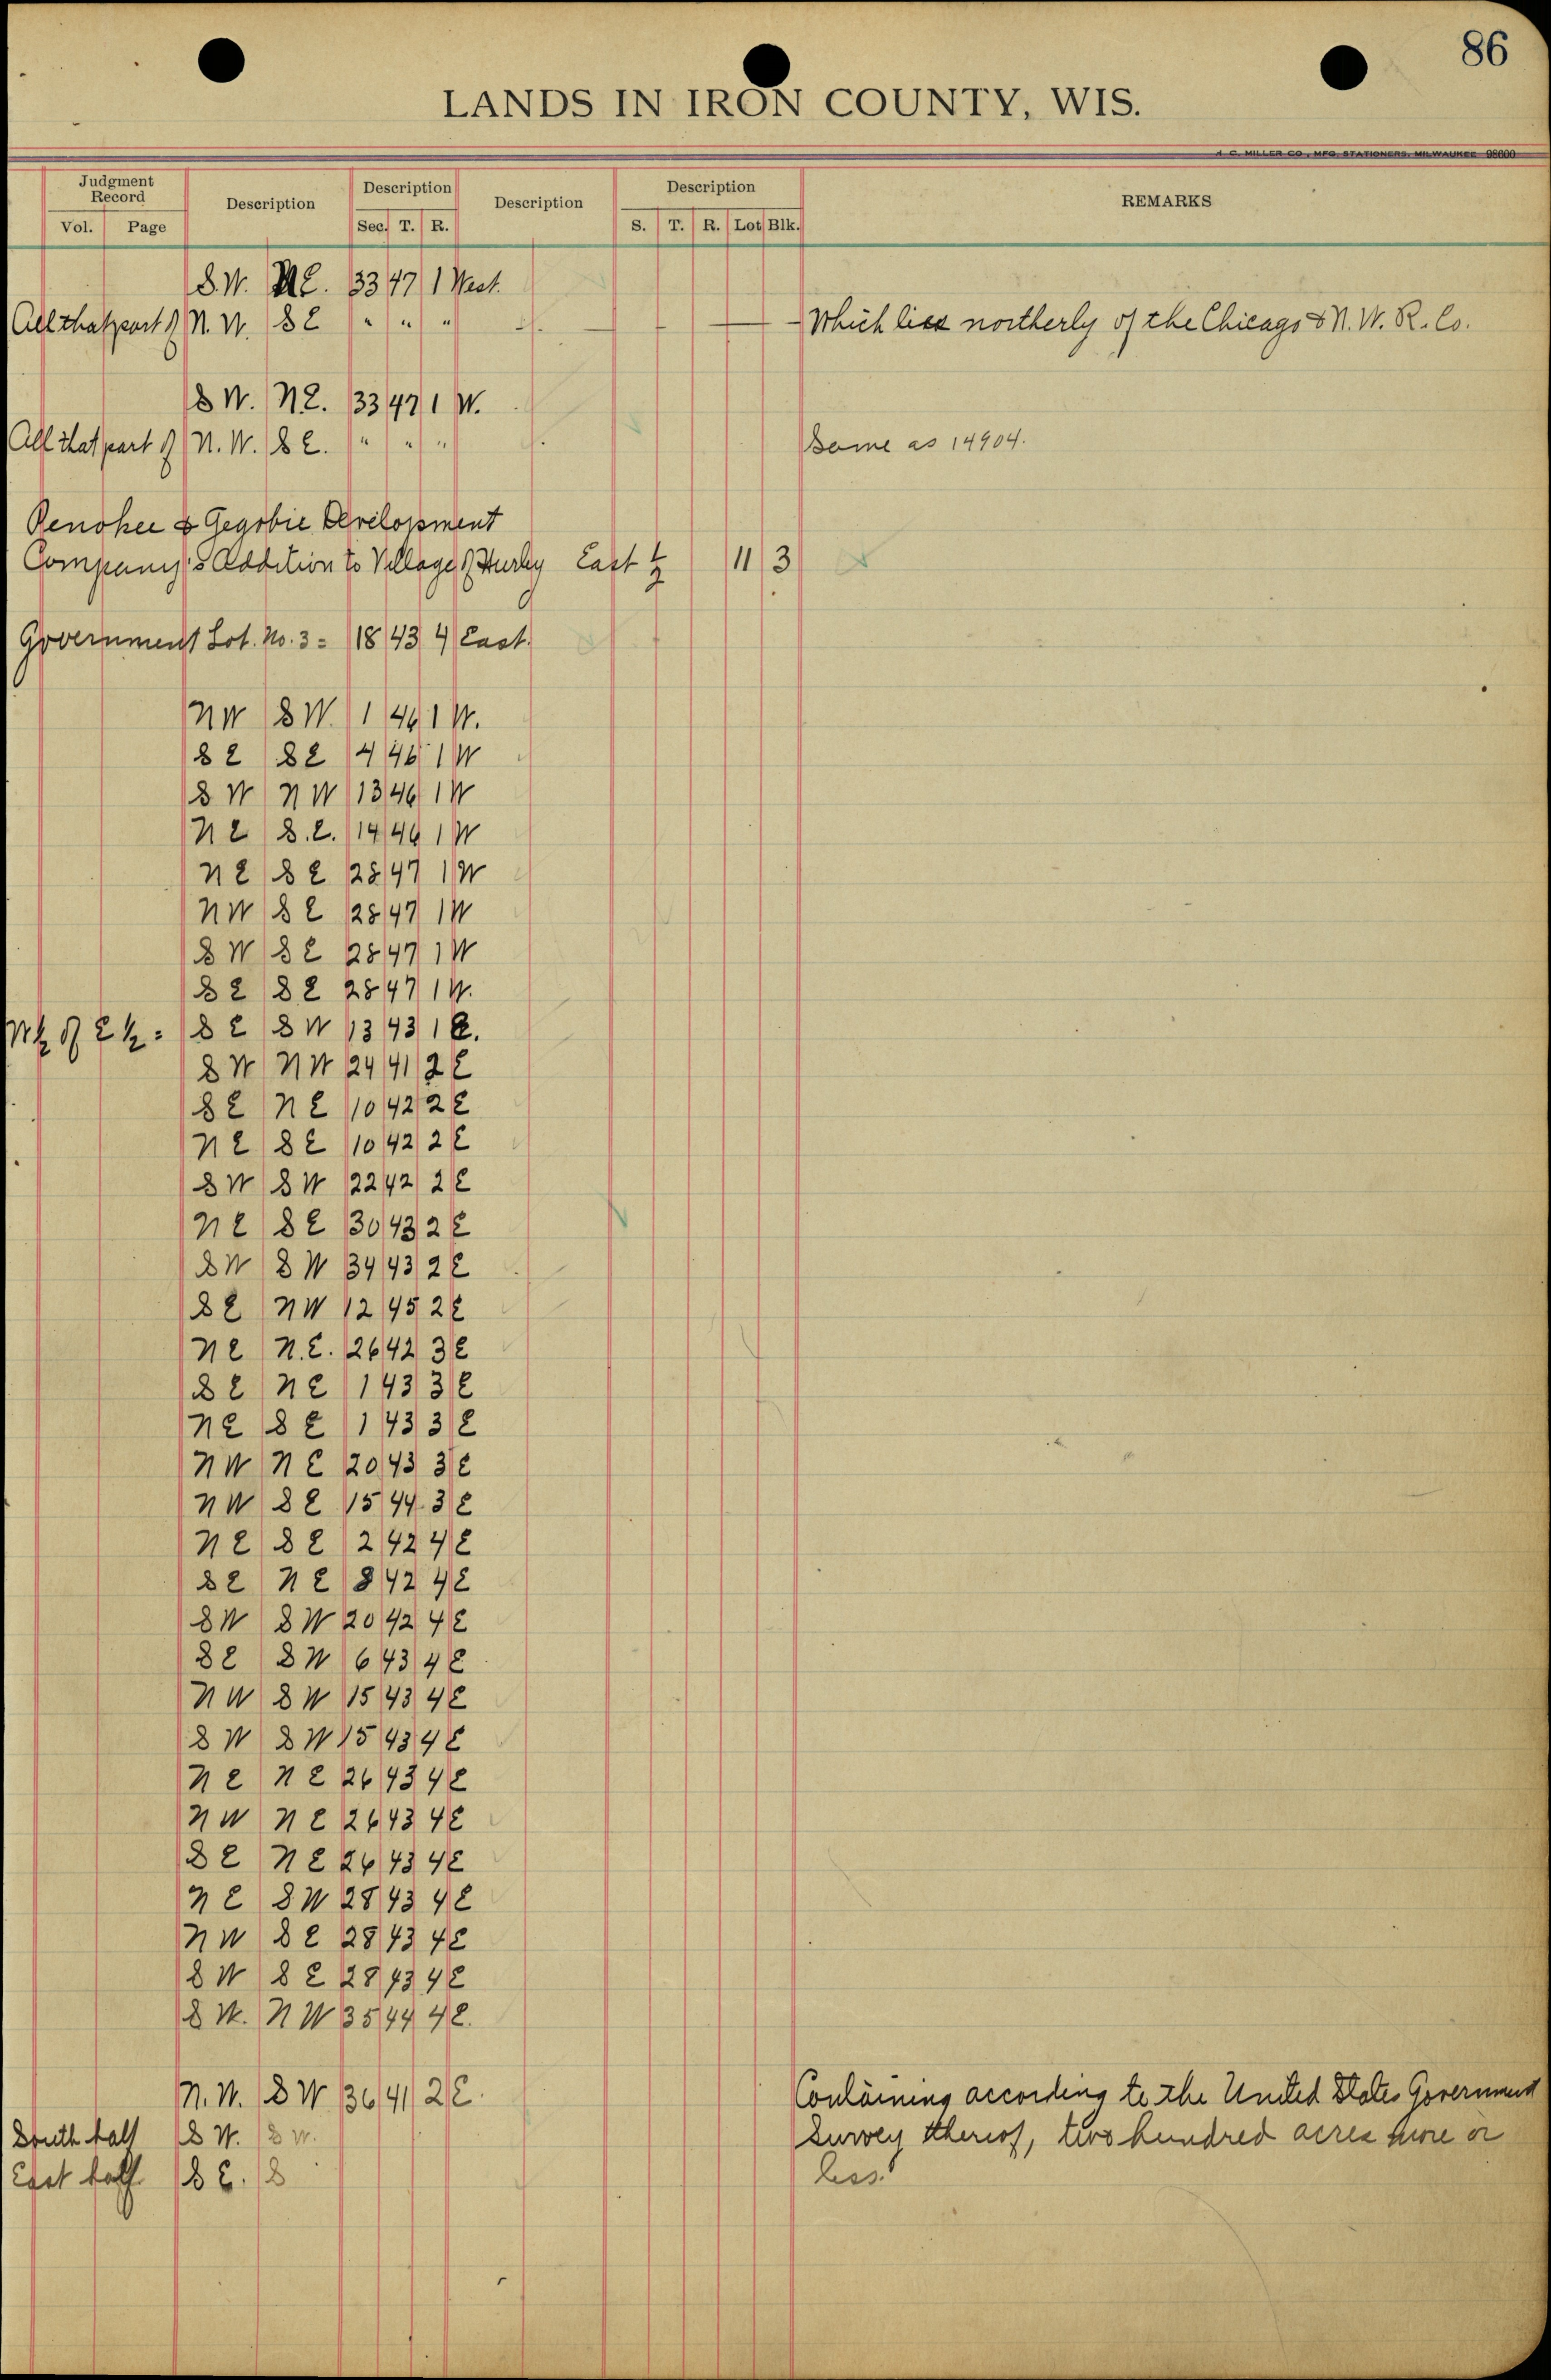 86
LANDS IN IRON COUNTY, WIS.
A. C. MILLER CO., MFG. STATIONERS, MILWAUKEE 98600
Judgment Record Description Description Description Description REMARKS
Vol. Page Sec. T. R. S. T. R. Lot Blk.
S.W. N.E. 33 47 1 West.
All that part of N. W. S E " " " Which lies northerly of the Chicago & N. W. R. Co.
S W. N E. 33 47 1 W.
All that part of N. W. S E. " " " Same as 14904.
Penokee & Gegobic Development
Company's Addition to Village of Hurley East ½ 11 3
Government Lot. No. 3 = 18 43 4 East.
N W S W. 1 46 1 W.
S E S E 4 46 1 W
S W N W 13 46 1 W
N E S. E. 14 46 1 W
N E S E 28 47 1 W
N W S E 28 47 1 W
S W S E 28 47 1 W
S E S E 28 47 1 W.
W½ of E½ = S E S W 13 43 1 E.
S W N W 24 41 2 E
S E N E 10 42 2 E
N E S E 10 42 2 E
S W S W 22 42 2 E
N E S E 30 43 2 E
S W S W 34 43 2 E
S E N W 12 45 2 E
N E N. E. 26 42 3 E
S E N E 1 43 3 E
N E S E 1 43 3 E
N W N E 20 43 3 E
N W S E 15 44 3 E
N E S E 2 42 4 E
S E N E 8 42 4 E
S W S W 20 42 4 E
S E S W 6 43 4 E
N W S W 15 43 4 E
S W S W 15 43 4 E
N E N E 26 43 4 E
N W N E 26 43 4 E
S E N E 26 43 4 E
N E S W 28 43 4 E
N W S E 28 43 4 E
S W S E 28 43 4 E
S W. N W 35 44 4 E.
N. W. S W 36 41 2 E. Containing according to the United States Government
South half S W. S W. Survey thereof, two hundred acres more or
East half S E. S less.